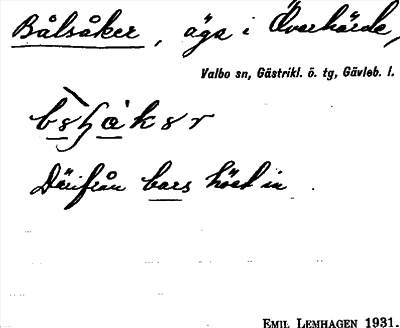 Bålsåker, äga i Överhärde,
Valbo sn, Gästrikl. ö. tg, Gävleb. l.
Därifrån bars höet in.
EMIL LEMHAGEN 1931.